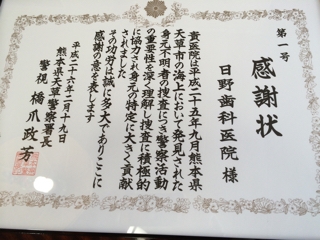 第一号
感謝状
日野歯科医院 様
貴医院は平成二十五年九月熊本県
天草市の海上において発見された
身元不明者の捜査につき警察活動
の重要性を深く理解し捜査に積極的
に協力され身元の特定に大きく貢献
されました
その功労は誠に多大でありここに
感謝の意を表します
平成二十六年二月十九日
熊本県天草警察署長
警視 橋爪政芳